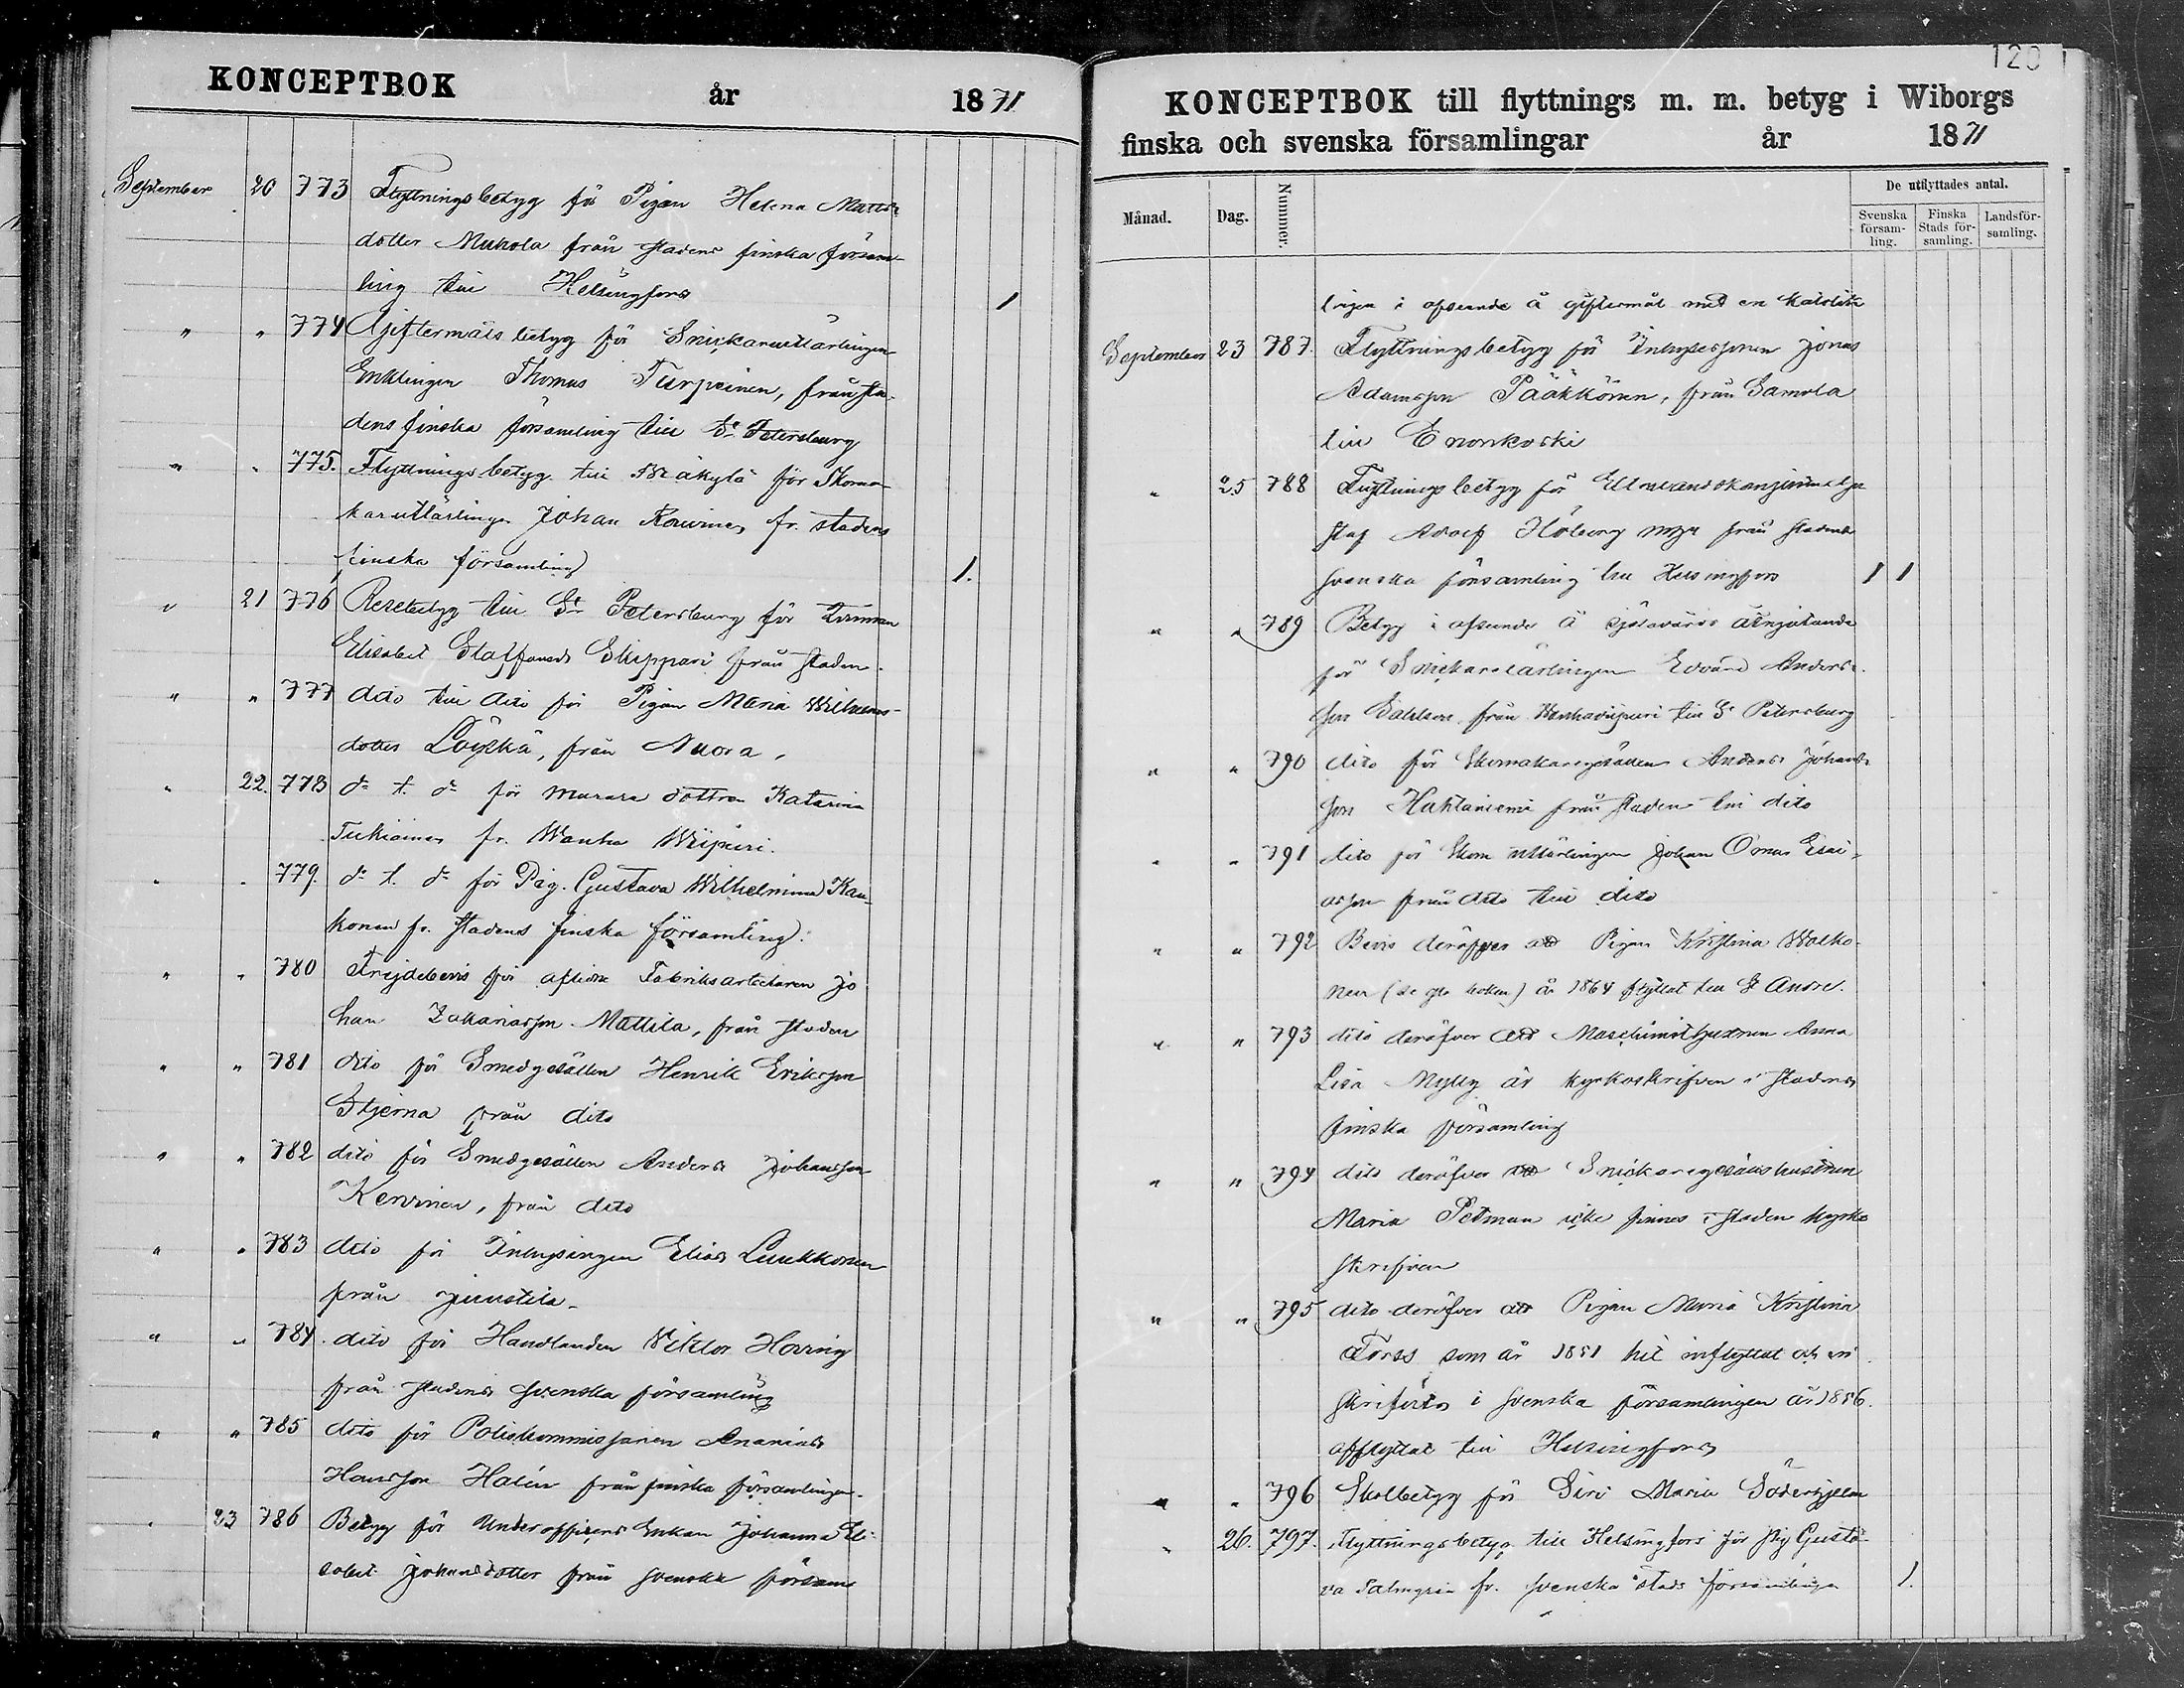 KONCEPTBOK år 1871
September 20 773 Flyttningsbetyg för Pigan Helena Matts-
dotter Mukola från stadens finska försam-
ling till Helsingfors 1
" " 774 Giftermålsbetyg för Snickareutlärlingen
Enklingen Thomas Turpeinen, från sta-
dens finska församling till St Petersburg
" " 775. Flyttningsbetyg till Mäkylä för Skoma-
karutlärlingen Johan Rouvinen fr. stadens
finska församling 1.
" 21 776 Resebetyg till St Petersburg för
Elisabet Staffansdr Skippari från staden.
" " 777 dito till dito för Pigan Maria Wilhelms-
dotter Löyskä, från Nuora,
" 22. 778 do t. do för murare dottren Katarina
Tukiainen fr. Wanha Wiipuri.
" " 779. do t. do för Pig. Gustava Wilhelmina Kau-
konen fr. stadens finska församling.
" " 780 Frejdebevis för aflidne Fabriksarbetaren Jo
han Zakariasson Mattila, från staden
" " 781 dito för Smedgesällen Henrik Eriksson
Stjerna från dito
" " 782 dito för Smedgesällen Anders Johansson
Kervinen, från dito
" " 783 dito för Inhysingen Elias Luukkonen
från Juustila.
" " 784. dito för Handlanden Viktor Hoving
från stadens svenska församling
" " 785 dito för Poliskommissarien Ananias
Hansson Halin från finska församlingen.
" 23 786 Betyg för Underofficers Enkan Johanna Eli-
sabet Johansdotter från svenska försam
120
KONCEPTBOK till flyttnings m. m. betyg i Wiborgs
finska och svenska församlingar år 1871
Månad. Dag. Nummer. De utflyttades antal.
Svenska församling. Finska Stads församling. Landsförsamling.
lingen i afseende å giftermål med en katolik
September 23 787. Flyttningsbetyg för Inhysessonen Jonas
Adamsson Pääkkönen, från Samola
till Enonkoski
" 25 788 Flyttningsbetyg för
staf Adolf Höberg från stadens
svenska församling till Helsingfors 1 1
" " 789 Betyg i afseende å själavårds åtnjutande
för Snickarelärlingen Edvard Anders-
son från Wanhaviipuri till St Petersburg
" " 790 dito för Skomakaregesällen Anders Johans-
son Haktaniemi från staden till dito
" " 791 dito för Skom utlärlingen Johan Omar Esai-
asson från dito till dito
" " 792 Bevis deröfver att Pigan Kristina Wolko-
nen år 1864 flyttat till St Andre.
" " 793 dito deröfver att Maschinisthustrun Anna
Lisa Mylly är kyrkoskrifven i stadens
finska församling
" " 794 dito deröfver att Snickaregesällshustrun
Maria Petman icke finnes i staden kyrko
skrifven
" " 795 dito deröfver att Pigan Maria Kristina
Forss som år 1851 hit inflyttat och in
skrifvits i svenska församlingen år 1856.
afflyttat till Helsingfors
" " 796 Skolbetyg för Siri Maria Söderhjelm
" 26. 797. Flyttningsbetyg till Helsingfors för pig Gusta-
va Palmgren fr. svenska stads församlingen 1.